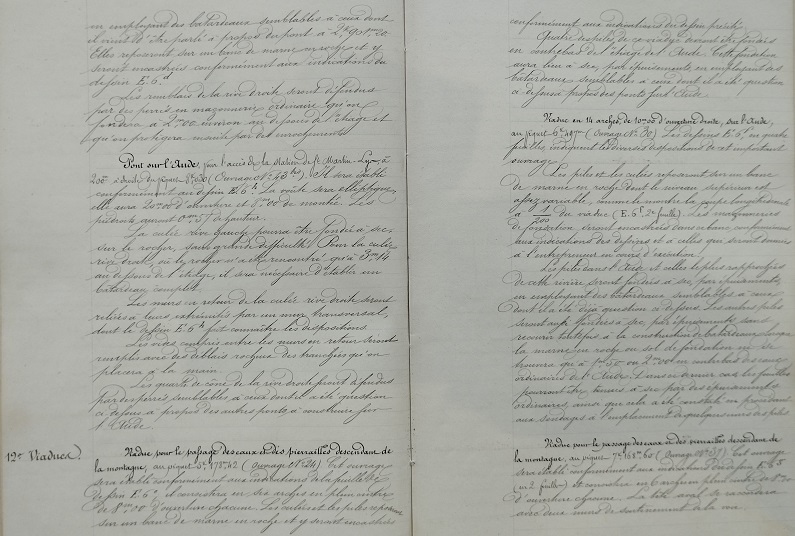 en employant des batardeaux semblables à ceux dont
il vient d'être parlé à propos du pont à
Elles reposeront sur un banc de marne en roche et y
seront encastrées conformément aux indications du
dessin E. 6.
Les remblais de la rive droite seront défendus
par des perrés en maçonnerie ordinaire qu'on
fondera à 2m00 environ au dessous de l'étiage et
qu'on protégera ensuite par des enrochements
Pont sur l'Aude, pour l'accès de la station de St Martin-Lys à
à droite du piquet (Ouvrage No ) Il sera établi
conformément au dessin E. 6. La voûte sera elliptique,
elle aura 20m00 d'ouverture et de montée. Les
piédroits auront de hauteur.
La culée rive gauche pourra être fondée à sec
sur le rocher, sans grande difficulté. Pour la culée
rive droite, où le rocher n'a été rencontré qu'à 3m14
au dessous de l'étiage, il sera nécessaire d'établir un
batardeau complet.
Les murs en retour de la culée rive droite seront
reliés à leurs extrémités par un mur transversal,
dont le dessin E. 6 fait connaître les dispositions.
Les vides compris entre les murs en retour seront
remplis avec des déblais rocheux des tranchées qu'on
placera à la main
Les quarts de cône de la rive droite seront défendus
par des perrés semblables à ceux dont il a été question
ci dessus à propos des autres ponts à construire sur
l'Aude.
12° Viaducs.
Viaduc pour le passage des eaux et des pierrailles descendant de
la montagne, au piquet (Ouvrage No 24) Cet ouvrage
sera établi conformément aux indications de la feuille
dessin E. 6 et consistera en six arches en plein cintre
de 8m00 d'ouverture chacune. Les culées et les piles reposeront
sur un banc de marne en roche et y seront encastrées
conformément aux indications du dessin précité.
Quatre des piles de ce viaduc devront être fondées
en contrebas de l'étiage de l'Aude. Cette fondation
aura lieu à sec, par épuisements, en employant des
batardeaux semblables à ceux dont il a été question
ci dessus à propos des ponts sur l'Aude.
Viaduc en 14 arches, de 10m00 d'ouverture droite, sur l'Aude,
au piquet (Ouvrage No 30) Les dessins E. 6 en quatre
feuilles indiquent les diverses dispositions de cet important
ouvrage.
Les piles et les culées reposeront sur un banc
de marne en roche dont le niveau supérieur est
assez variable, comme le montre la coupe longitudinale
à 1/200 du viaduc (E. 6 2e feuille). Les maçonneries
de fondation seront encastrées dans ce banc conformément
aux indications des dessins et à celles qui seront données
à l'entrepreneur en cours d'exécution.
Les piles dans l'Aude et celles les plus rapprochées
de cette rivière seront fondées à sec, par épuisements,
en employant des batardeaux semblables à ceux
dont il a été déjà question ci dessus. Les autres piles
seront aussi fondées à sec par épuisements sans
recourir toutefois à la construction de batardeaux, lorsque
la marne en roche ou sol de fondation ne se
trouvera qu'à 1m50 ou 2m00 en contrebas des eaux
ordinaires de l'Aude. Dans ce dernier cas, les fouilles
pourront être tenues à sec par des épuisements
ordinaires, ainsi que cela a été constaté en procédant
aux sondages à l'emplacement de quelques unes des piles.
Viaduc pour le passage des eaux et des pierrailles descendant de
la montagne, au piquet (Ouvrage No ) Cet ouvrage
sera établi conformément aux indications des dessins E. 6
(en 2 feuilles) et consistera en 6 arches en plein cintre de 8m00
d'ouverture chacune. La tête aval se raccordera
avec deux murs de soutènement à la mer.